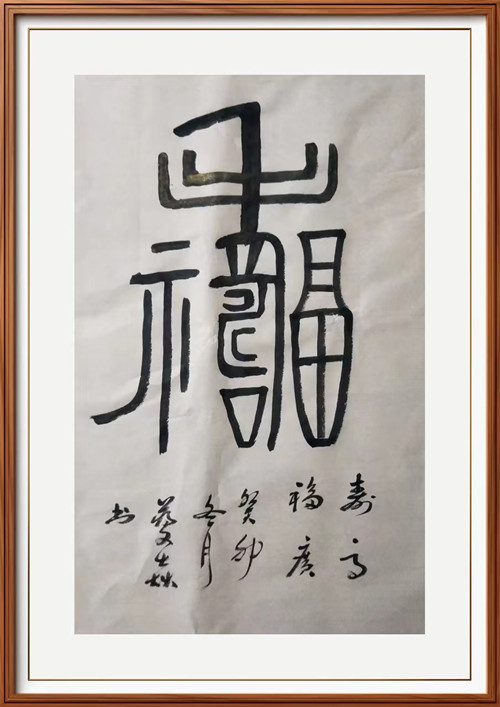 福壽
寿高
福廣
癸卯
冬月
书